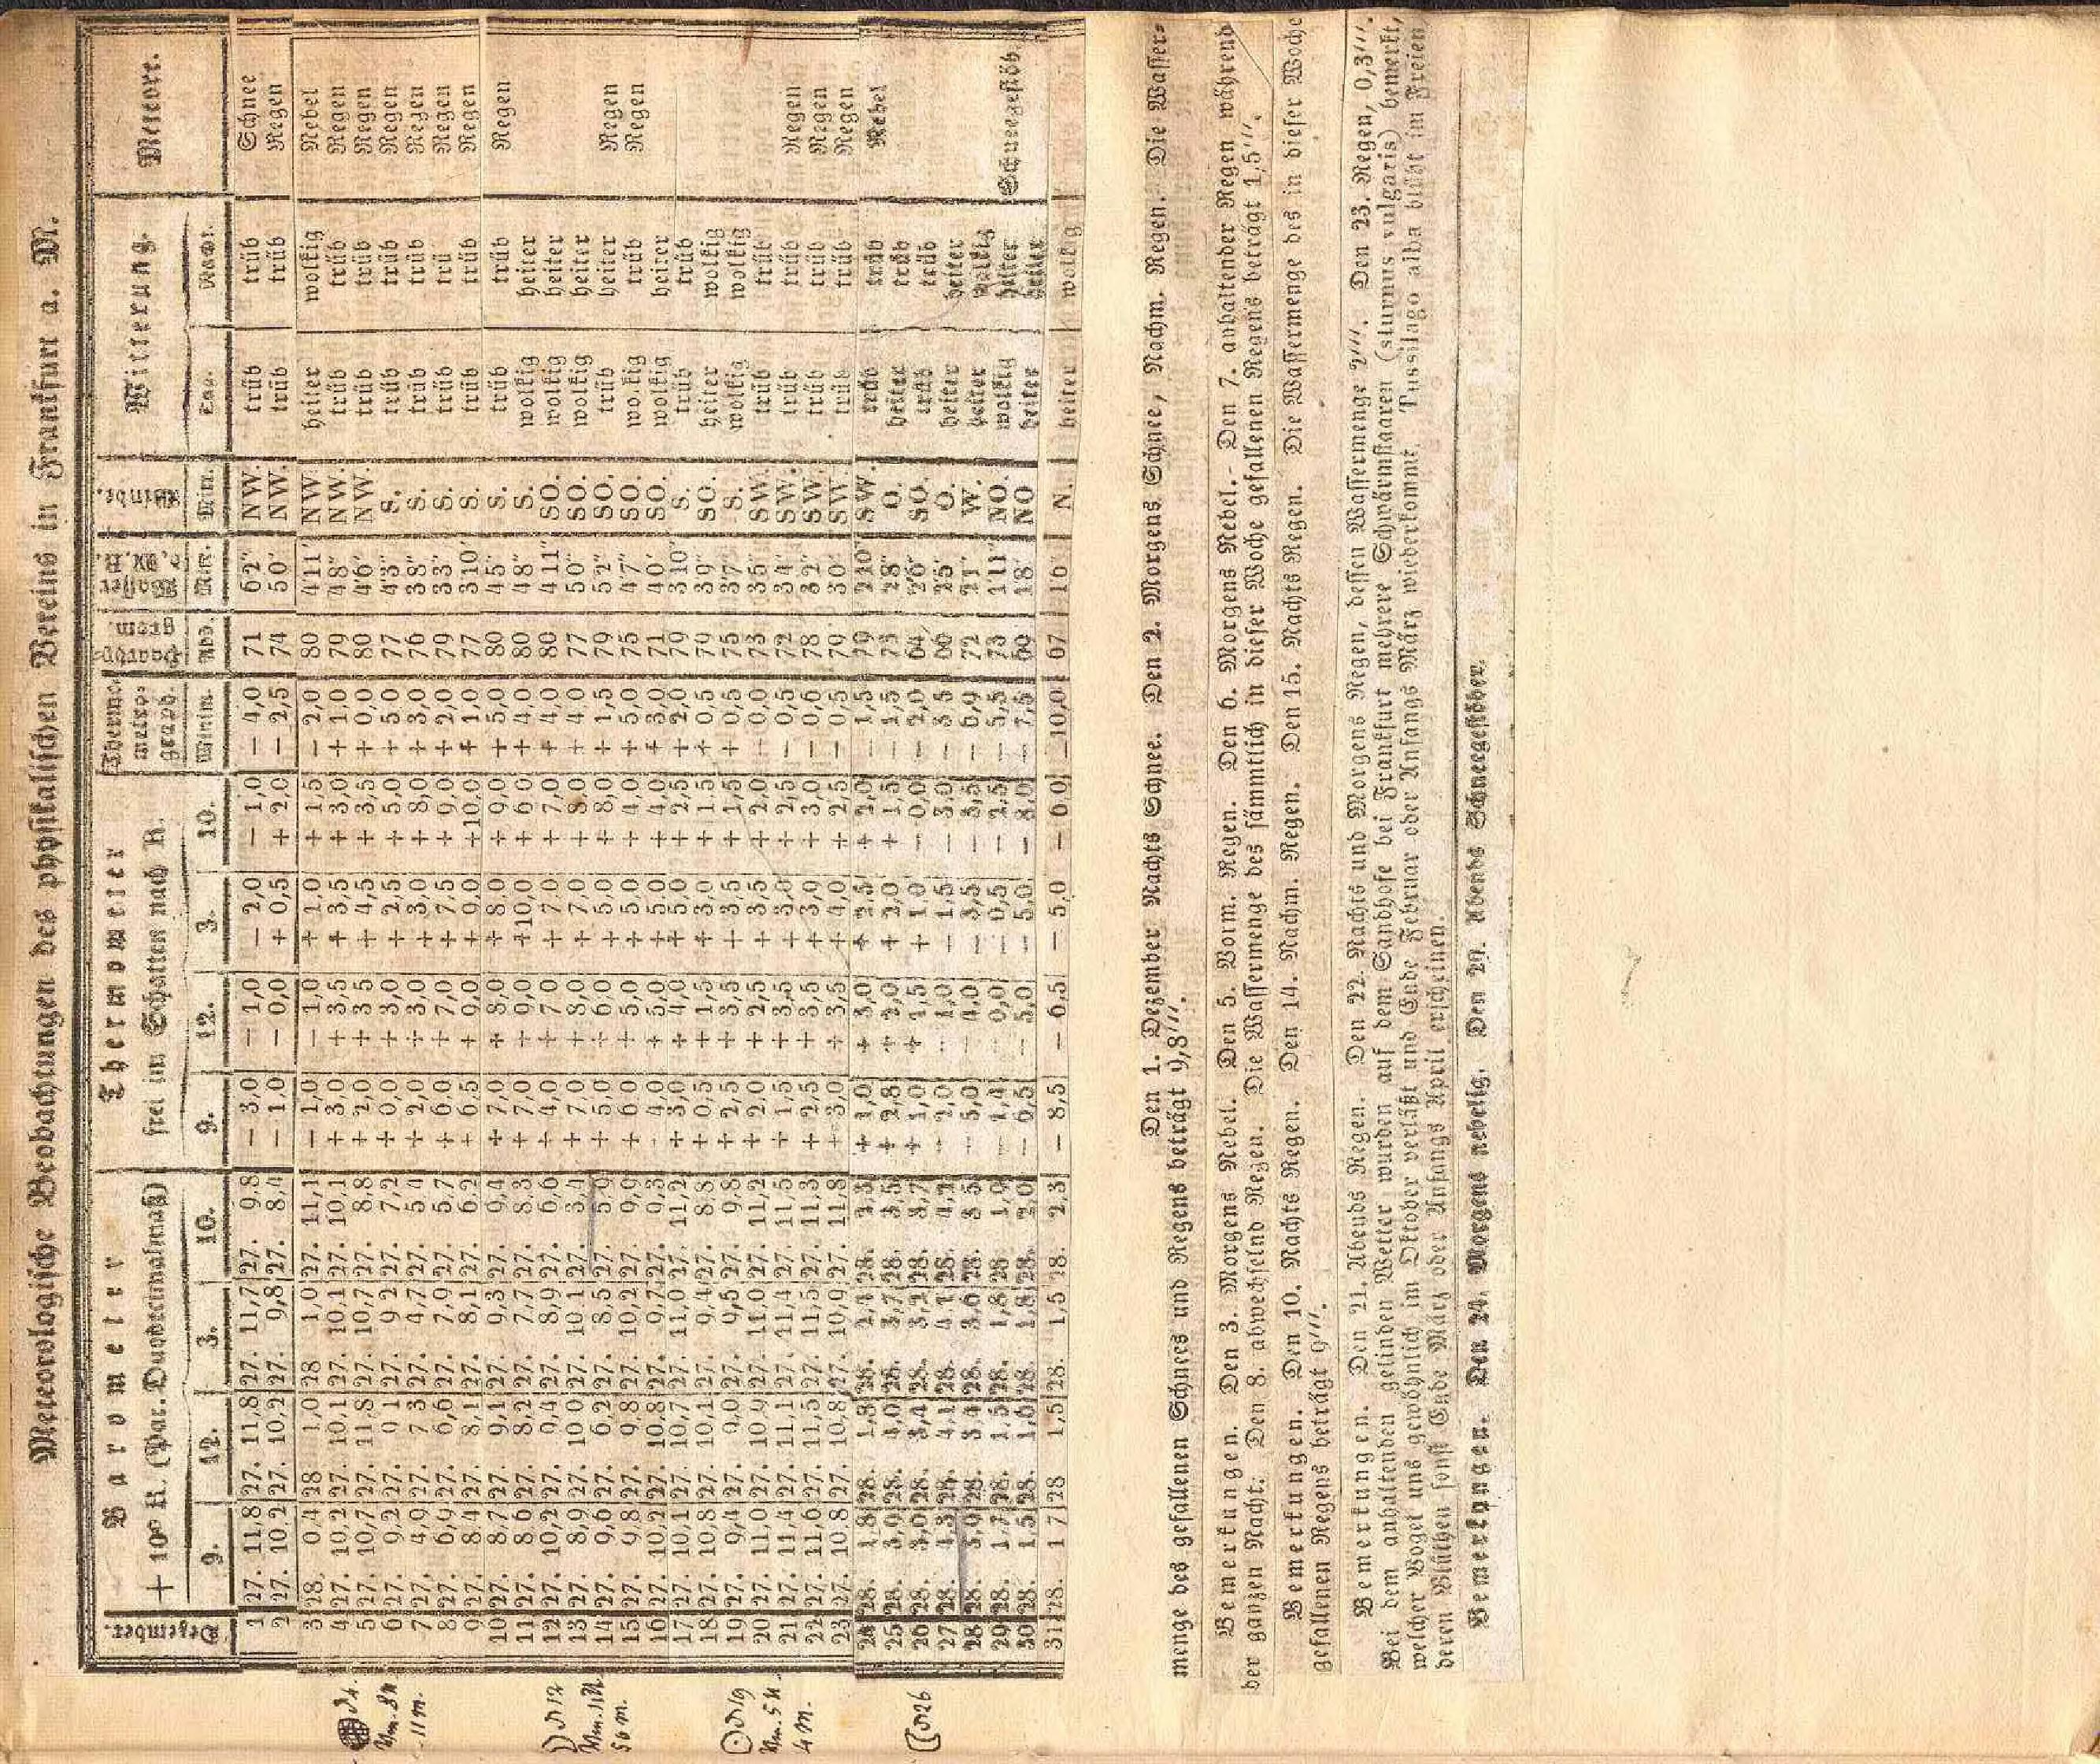 Meteorologische Beobachtungen des physikalischen Vereins in Frankfurt a. M.
Dezember. Barometer Thermometer Thermometrograph. Hygrometer. Wasser Winde. Witterung. Meteore.
+ 10° R. (Par. Duodecimalmaß) frei im Schatten nach R.
9. 12. 3. 10. 9. 12. 3. 10. Minim. Mitt. Mitt. Tag. Nacht.
1 27. 11,8 27. 11,8 27. 11,7 27. 9,8 — 3,0 — 1,0 — 2,0 — 1,0 — 4,0 71 6 2" NW. trüb trüb Schnee
2 27. 10,2 27. 10,2 27. 9,8 27. 8,4 — 1,0 — 0,0 + 0,5 + 2,0 — 2,5 74 5 0' NW. trüb trüb Regen
3 28. 0,4 28 1,0 28 1,0 27. 11,1 — 1,0 — 1,0 + 1,0 + 1 5 — 2,0 80 4 11' NW. heiter wolkig Nebel
4 27. 10,2 27. 10,1 27. 10,1 27. 10,1 + 3,0 + 3,5 + 3,5 + 3,0 + 1,0 79 4 8" NW. trüb trüb Regen
5 27. 10,7 27. 11,8 27. 10,7 27. 8,8 + 2,0 + 3 5 + 4,5 + 3,5 + 0,0 80 4 6' NW. trüb trüb Regen
6 27. 9,2 27. 9,1 27. 9,2 27. 7,2 + 0,0 + 3,0 + 2,5 + 5,0 + 5,0 77 4 3" S. trüb trüb Regen
7 27. 4,9 27. 7 3 27. 4,7 27. 5 4 + 2,0 + 3,0 + 3,0 + 8,0 + 3,0 76 3 8" S. trüb trüb Regen
8 27. 6,9 27. 6,6 27. 7,9 27. 5,7 + 6,0 + 7,0 + 7,5 + 9,0 + 2,0 79 3 3" S. trüb trü Regen
9 27. 8,4 27. 8,1 27. 8,1 27. 6,2 + 6,5 + 9,0 + 9,0 +10,0 + 1,0 77 3 10' S. trüb trüb Regen
10 27. 8,7 27. 9,1 27. 9,3 27. 9,4 + 7,0 + 8,0 + 8,0 + 9,0 + 5,0 80 4 5' S. trüb trüb Regen
11 27. 8 6 27. 8,2 27. 7,7 27. 8.3 + 7,0 + 9,0 +10,0 + 6 0 + 4,0 80 4 8" S. wolkig heiter
12 27. 10,2 27. 9,4 27. 8,9 27. 6,6 + 4,0 + 7 0 + 7,0 + 7,0 + 4,0 80 4 11" SO. wolkig heiter
13 27. 8,9 27. 10 0 27. 10 1 27. 3,4 + 7,0 + 8,0 + 7,0 + 8,0 + 4,0 77 5 0" SO. wolkig heiter
14 27. 9,6 27. 6,2 27. 8,5 27. 5,9 + 5,0 + 6,0 + 5,0 + 8,0 + 1,5 79 5 2" SO. trüb heiter Regen
15 27. 9,8 27. 9,8 27. 10,2 27. 9,9 + 6 0 + 5,0 + 5,0 + 4,0 + 5,0 75 4 7" SO. wolkig trüb Regen
16 27. 10,2 27. 10,8 27. 9,7 27. 9,3 4,0 + 5,0 + 5,0 + 4,0 + 3,0 71 4 0' SO. wolkig heiter
17 27. 10,1 27. 10,7 27. 11,0 27. 11,2 + 3,0 + 4,0 + 5,0 + 2,5 + 2,0 79 3 10" S. trüb trüb
18 27. 10,8 27. 10,1 27. 9,4 27. 8,8 + 0,5 + 1,5 + 3,0 + 1 5 + 0,5 79 3 9" SO. heiter wolkig
19 27. 9,4 27. 9,0 27. 9,5 27. 9,8 + 2,5 + 3,5 + 3,5 + 1,5 + 0,5 75 3 7" S. wolkig wolkig
20 27. 11 0 27. 10,9 27. 11,0 27. 11,2 + 2,0 + 2,5 + 3,5 + 2,0 — 0,0 73 3 5" SW. trüb trüb
21 27. 11,4 27. 11,1 27. 11,4 27. 11,5 + 1,5 + 3,5 + 3,0 + 2,5 — 0,5 72 3 4' SW. trüb trüb Regen
22 27. 11,6 27. 11,5 27. 11,5 27. 11,3 + 2,5 + 3,5 + 3,0 + 3,0 — 0,6 78 3 2" SW. trüb trüb Regen
23 27. 10 8 27. 10,8 27. 10,9 27. 11,8 + 3,0 + 3,5 + 4,0 + 2,5 — 0,5 79 3 0' SW. trüb trüb Regen
24 28. 1,8 28. 1,8 28. 28. + 1,0 + 3,0 + + 2,0 — 1,5 SW. trüb trüb Nebel
25 28. 28. 28. 28. + 2,8 + + + 1,5 — 1,5 O. heiter trüb
26 28. 28. 28. 28. + 1,0 + 1,5 + 1 0 — 0,0 — 2,0 SO. trüb trüb
27 28. 28. 28. 28. — 2,0 — 1,0 — 1,5 — 3,0 O. heiter heiter
28 28. 28. 28. 28. — 5,0 — 4,0 — 3,5 — 6,9 72 W. heiter wolkig
29 28. 28. 28. 28 1,0 0,0 — 0,5 — 2,5 — 5,5 73 1 11" NO. wolkig heiter Schneegestöb.
30 28. 1 5 28. 1,6 28. 28. 2,0 — 6,5 — 5,0 — 5,0 — — 7,5 69 1 8' NO heiter heiter
31 28. 1 7 28 1,5 28. 1,5 28. 2,3 — 8,5 — 6,5 — 5,0 — 6 0 —10,0 67 1 6" N. heiter wolkig
Vm. 8 U
11 m.
12
Vm. 11 U
50 m.
19
Vm. 5 U.
4 m.
26
Den 1. Dezember Nachts Schnee. Den 2. Morgens Schnee, Nachm. Regen. Die Wasser-
menge des gefallenen Schnees und Regens beträgt 9,8'''.
Bemerkungen. Den 3. Morgens Nebel. Den 5. Vorm. Regen. Den 6. Morgens Nebel. - Den 7. anhaltender Regen während
der ganzen Nacht. Den 8. abwechselnd Regen. Die Wassermenge des sämmtlich in dieser Woche gefallenen Regens beträgt 1,5'''.
Bemerkungen. Den 10. Nachts Regen. Den 14. Nachm. Regen. Den 15. Nachts Regen. Die Wassermenge des in dieser Woche
gefallenen Regens beträgt 9'''.
Bemerkungen. Den 21. Abends Regen. Den 22. Nachts und Morgens Regen, dessen Wassermenge 2'''. Den 23. Regen, 0,3'''.
Bei dem anhaltenden gelinden Wetter wurden auf dem Sandhofe bei Frankfurt mehrere Schwärmstaaren (sturnus vulgaris) bemerkt,
welcher Vogel uns gewöhnlich im Oktober verläßt und Ende Februar oder Anfangs März wiederkommt. Tussilago alba blüht im Freien,
deren Blüthen sonst Ende März oder Anfangs April erscheinen.
Bemerkungen. Den 24. Morgens nebelig. Den 29. Abends Schneegestöber.